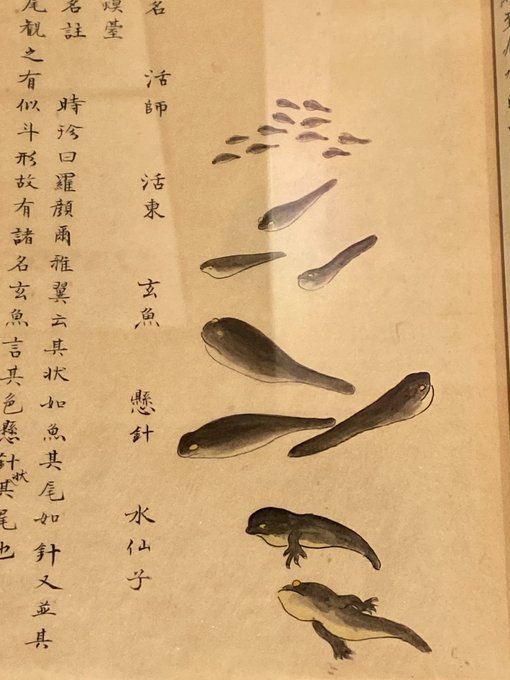 名 活師 活東 玄魚 懸針 水仙子
臺
名註 時珍曰羅顔爾雅翼云其状如魚其尾如針又並其
尾観之有似斗形故有諸名玄魚言其色懸針状其尾也